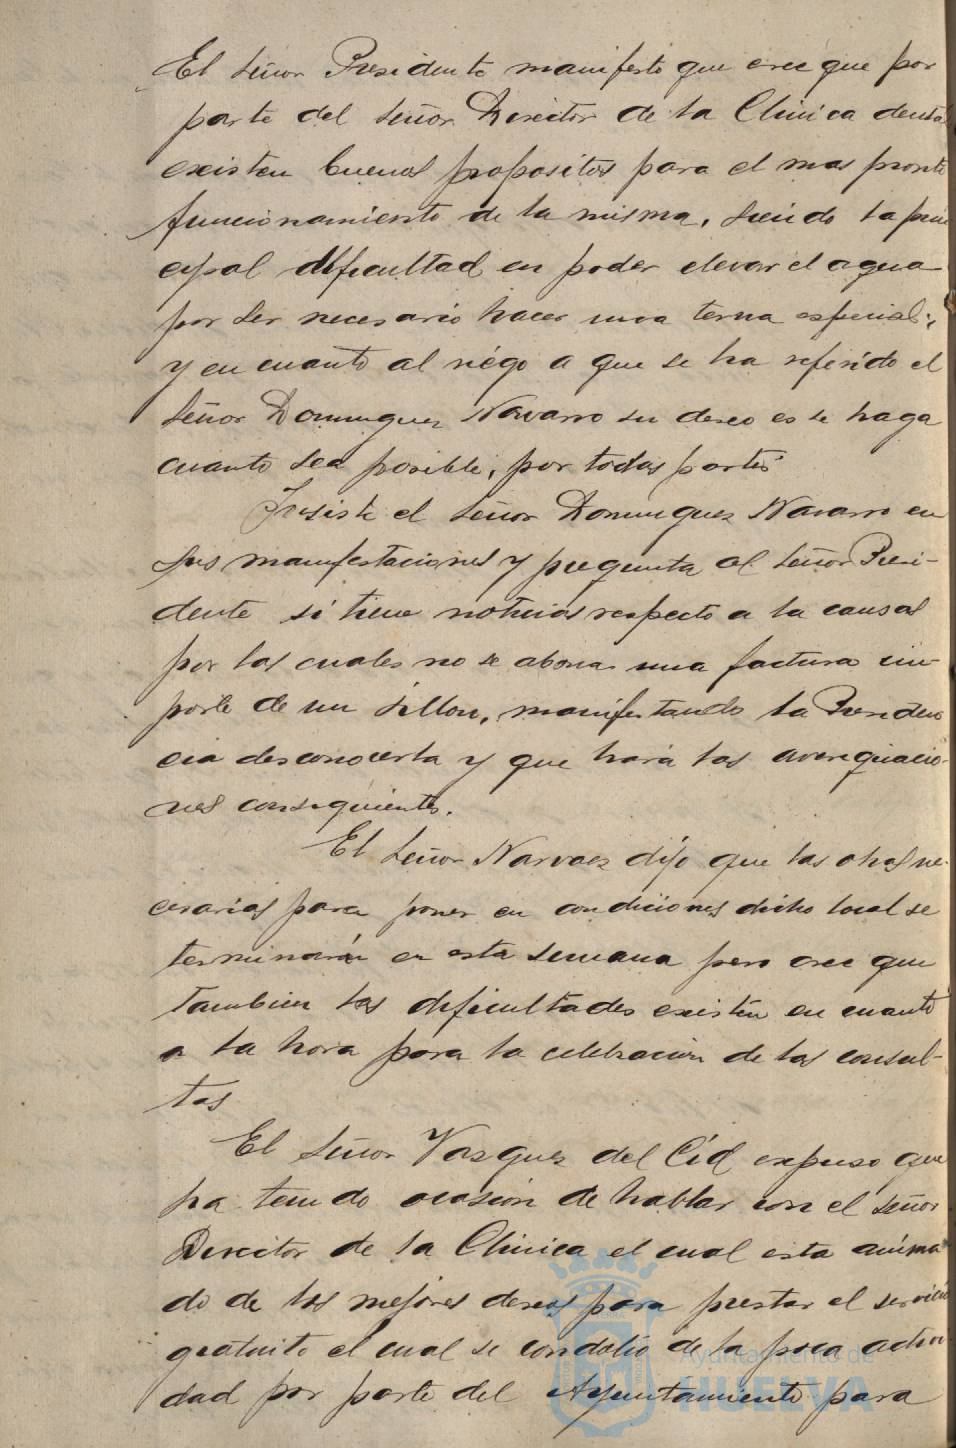 El Señor Presidente manifesto que cree que por
parte del Señor Director de la Clinica dental
existen buenos propositos para el mas pronto
funcionamiento de la misma, siendo la prin
cipal dificultad en poder elevar el agua
por ser necesario hacer una terna especial;
y en cuanto al riego a que se ha referido el
Señor Dominguez Navarro su deseo es se haga
cuanto sea posible, por todas partes
Insiste el Señor Dominguez Navarro en
sus manifestaciones y pregunta al Señor Presi-
dente si tiene noticias respecto a la causas
por las cuales no se abona una factura im-
porte de un sillon, manifestando la Presiden
cia desconocerla y que hará las averiguacio-
nes consiguientes.
El Señor Narvaez dijo que las obras ne-
cesarias para poner en condiciones dicho local se
terminarán en esta semana pero cree que
tambien las dificultades existen en cuanto
a la hora para la celebracion de las consul-
tas
El Señor Vazquez del Cid expuso que
ha tenido ocasión de hablar con el Señor
Director de la Clinica el cual esta anima
do de los mejores deseos para prestar el servicio
gratuito el cual se condolio de la poca activi
dad por parte del Ayuntamiento para
Ayuntamiento de
HUELVA